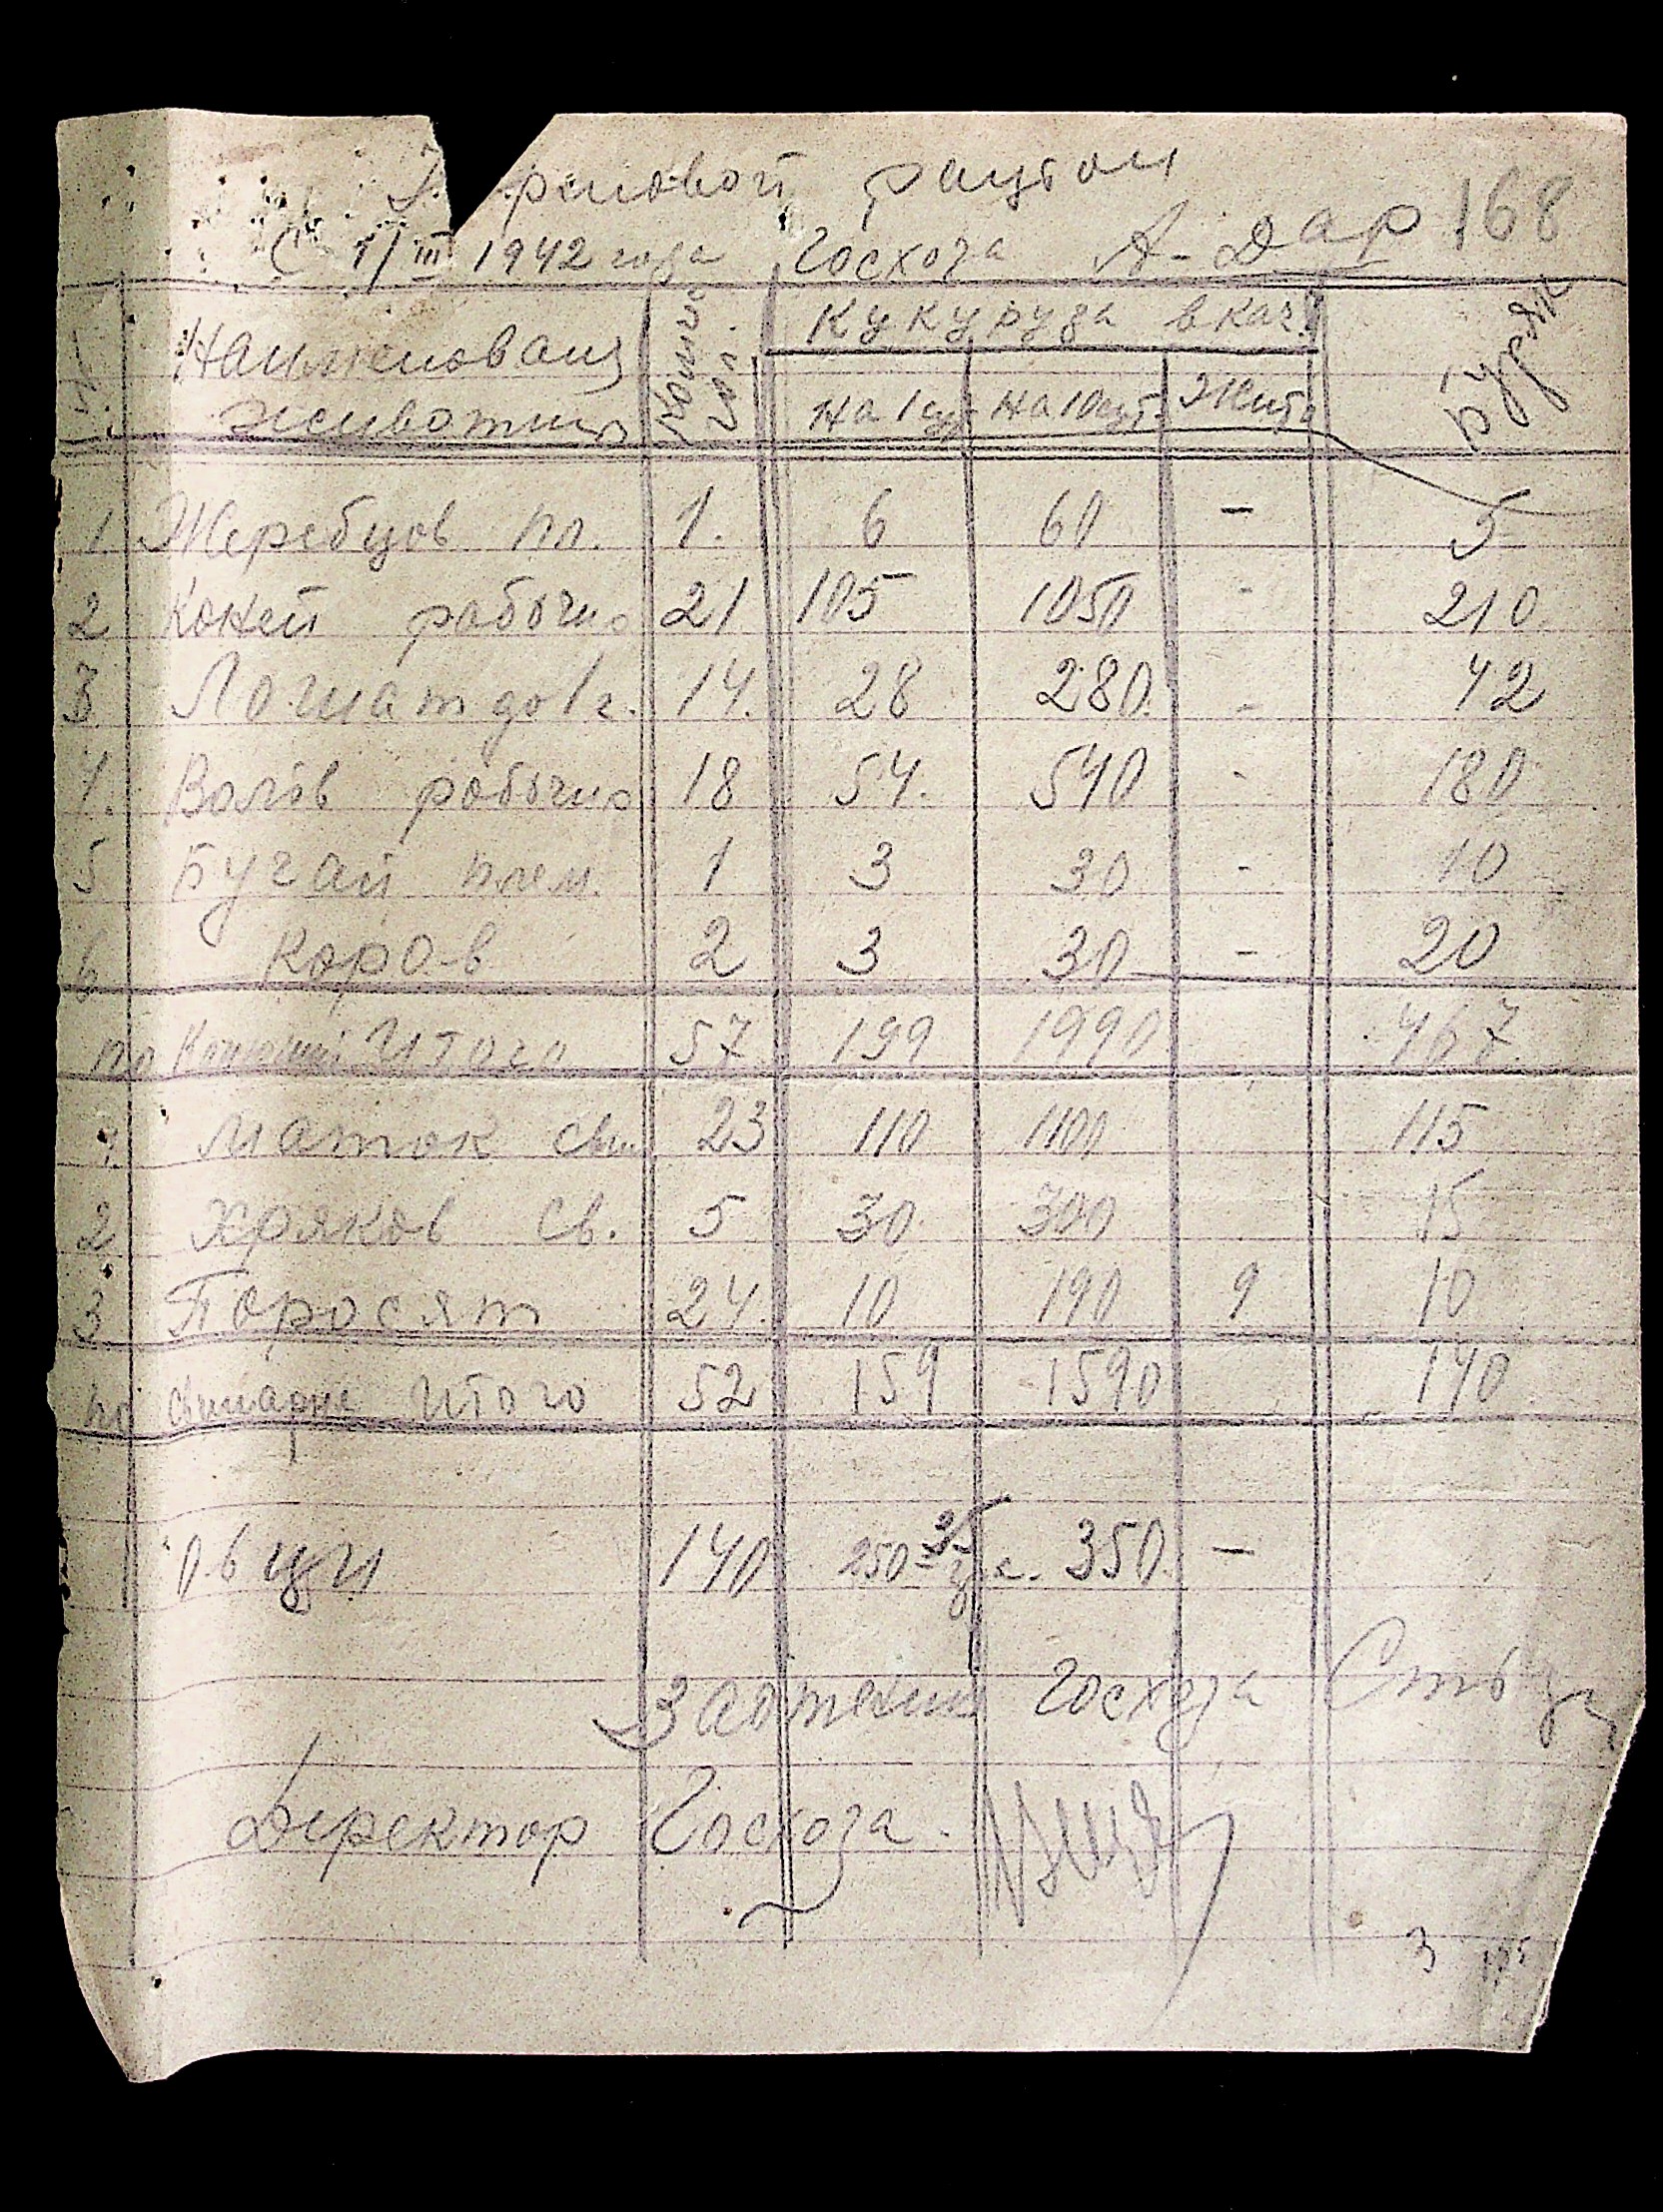 рмовой рацион
С 1/III 1942 года Госхоза А-Дар 168
Наименован животных
Кукуруза в кач.
На 1 сут На 10 сут. Жита
Буряк
1 Жеребцов пл. 1. 6 60 - 5
2 Коней рабочих 21 105 1050 - 210.
3 Лошат до 1 г. 14. 28 280. - 42
4. Волов робочих 18 54. 540 - 180
5 Бугай плем. 1 3 30 - 10
6 Коров 2 3 30 - 20
по Конюшни Итого 57 199 1990 467
Маток сви. 23 110 1100 115
2 Хряков св. 5 30 300 15
3 Поросят 24. 10 190 9 10
по свинарне Итого 52 159 1590 140
Овци 140 250 г. 350 -
Зоотехник Госхоза
Директор Госхоза.